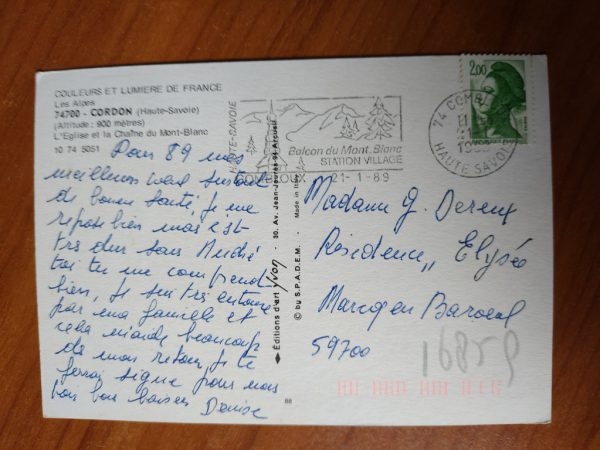 COULEURS ET LUMIERE DE FRANCE
Les Alpes
74700 - CORDON (Haute-Savoie)
(Altitude : 900 mètres)
L'Eglise et la Chaîne du Mont-Blanc
10 74 5051
Pour 89 mes
meilleurs vœux surtout
de bonne santé, je me
repose bien mais c'est
très dur sans André
toi tu me comprend
bien, Je suis très entourée
par ma famille et
cela m'aide beaucoup
de mon retour, Je te
ferai signe pour nous
voir bon baisers Denise
HAUTE-SAVOIE
Balcon du Mont-Blanc
STATION VILLAGE
COMBLOUX 21-1-89
74 COMB
HAUTE SAVOIE
2,00
Editions d'art Yvon - 30, Av. Jean-Jaurès-94 Arcueil
© by S.P.A.D.E.M. - Made in Italy
88
Madame G. Dereux
Résidence „ Elysée
Marcq en Baroeul
59700
16859